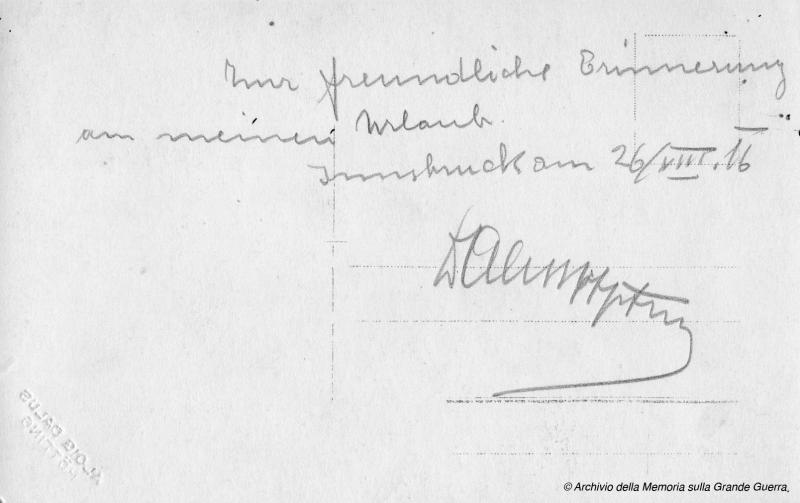 Zur freundliche Erinnerung
am meinen Urlaub.
Innsbruck am 26/VIII.16
ALOIS GALUS
© Archivio della Memoria sulla Grande Guerra,